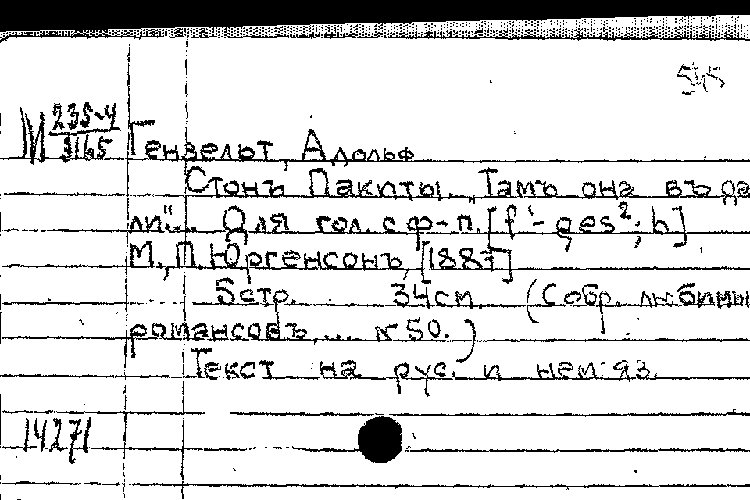 545
М 235-4
3165
Гензельт, Адольф
Стонъ Пакиты. "Тамъ она въ да
ли"... Для гол. с ф-п. [f'-ges²; h]
М., П. Юргенсонъ, [1887]
5 стр. 34 см. (Собр. любимы
романсовъ.... № 50.)
Текст на рус. и нем. яз.
14271